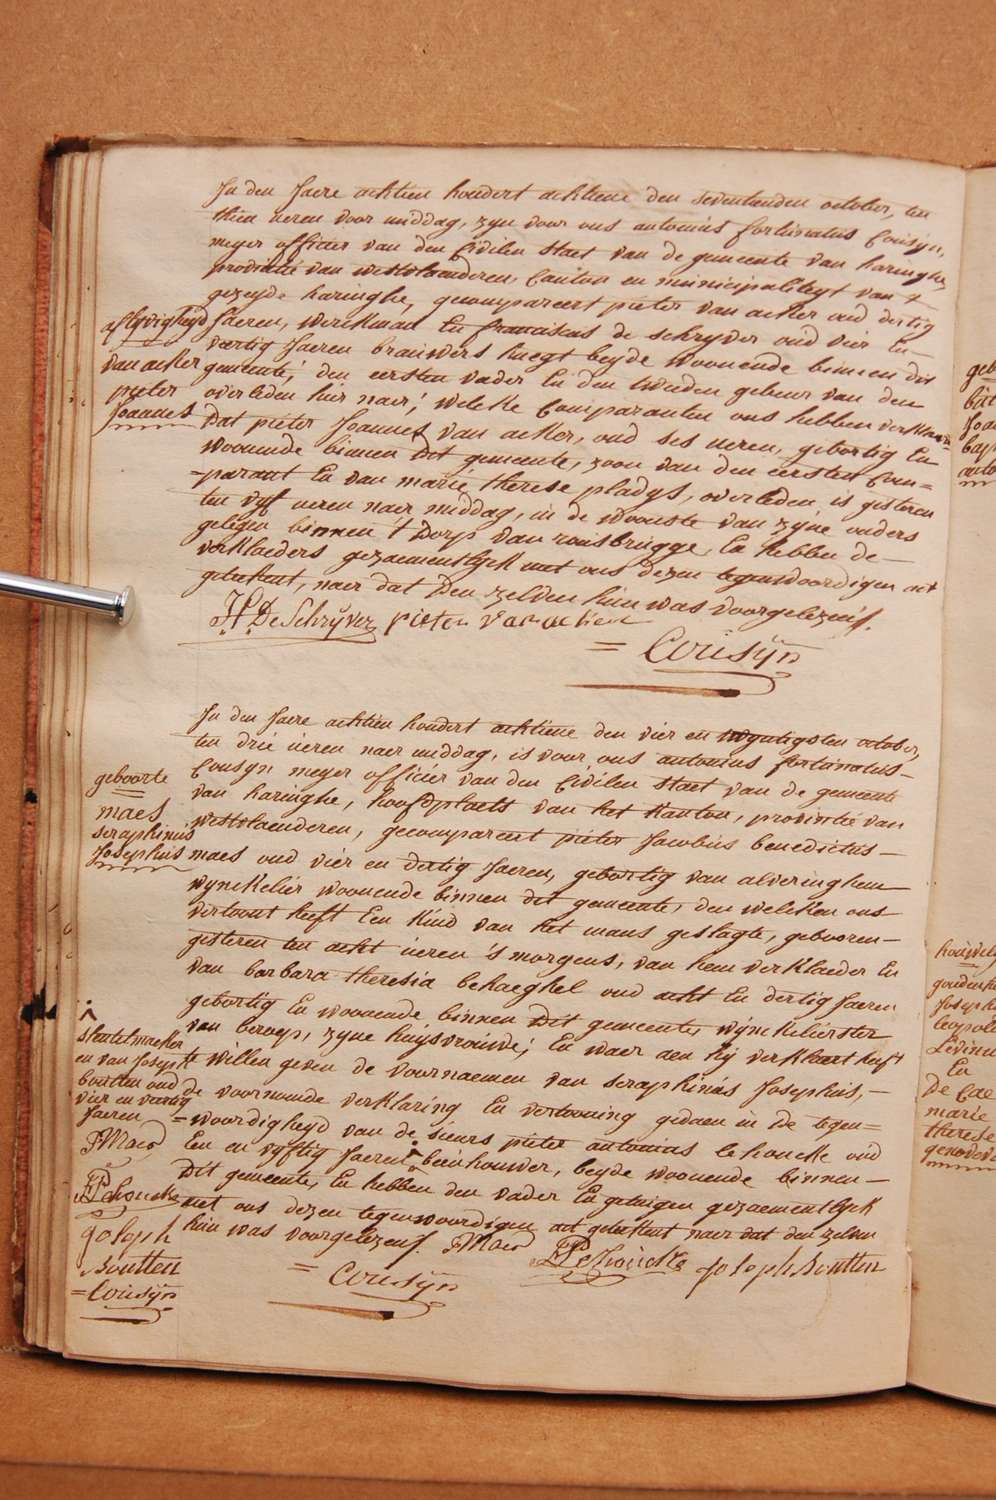 In den Jaere achtien hondert achtiene den seventienden october, ten
thien ueren voor middag, zyn voor ons antonius fortunatus Cousyn,
meyer officier van den Civilen Staet van de gemeente van haringhe,
provintie van westvlaenderen, Canton en municipaliteyt van
gezeyde haringhe, gecompareert pieter van acker oud dertig
Jaeren, werckman En franciscus de schryver oud vier En
veertig Jaeren brauwers knegt beyde woonende binnen dit
gemeente, den eersten vader En den tweeden gebeur van den
overleden hier naer, welcke Comparanten ons hebben verklaert
Dat pieter Joannes van acker, oud ses ueren, gebortig En
woonende binnen dit gemeente, zoon van den eersten Com=
=parant En van marie therese pladys, overleden is gisteren
ten vyf ueren naer middag, in de wooninge van zyne ouders
gelegen binnen t Dorp van rousbrugge, En hebben de
verklaeders gezaementlyck met ons dezen tegenwoordigen act
geteekent, naer dat den zelven hun was voorgelezen.
aflyvigheyd
van acker
pieter
Joannes
F De Schryver pieter van acker
= Cousÿn
In den Jaere achtien hondert achtiene den vier en twyntigsten october,
ten drie ueren naer middag, is voor ons antonius fortunatus
Cousyn meyer officier van den Civilen Staet van de gemeente
van haringhe, hoofdplaets van het Kanton, provintie van
westvlaenderen, gecompareert pieter Jacobus benedictus
maes oud vier en dertig Jaeren, gebortig van alveringhem
wynckelier woonende binnen dit gemeente, den welcken ons
vertoont heeft Een Kind van het mans geslagte, gebooren
gisteren ten acht ueren 's morgens, van hem verklaeder En
van barbara theresia behaeghel oud acht En dertig Jaeren
gebortig En woonende binnen Dit gemeente, wynckelierster
van beroep, zyne huysvrouwe; En waer aen hy verklaert heeft
te willen geven de voornaemen van seraphinus Josephus,
de voornoemde verklaring En vertooning gedaen in de tegen=
=woordigheyd van de sieurs pieter antonius lehoucke oud
Een en vyftig Jaeren beenhouwer, beyde woonende binnen
Dit gemeente, En hebben den vader En getuigen gezaementlyck
met ons dezen tegenwoordigen act geteekent naer dat den zelven
hun was voorgelezen. PMaes PLehoucke Joseph Boutten
= Cousÿn
geboorte
maes
seraphinus
Josephus
en van Joseph
boutten oud
vier en veertig
Jaeren
PMaes
PLehoucke
Joseph
Boutten
= Cousÿn
geb
Joan
bap
anto
houwely
Joseph
leopol
Livinu
En
De Cae
marie
therese
genoveva